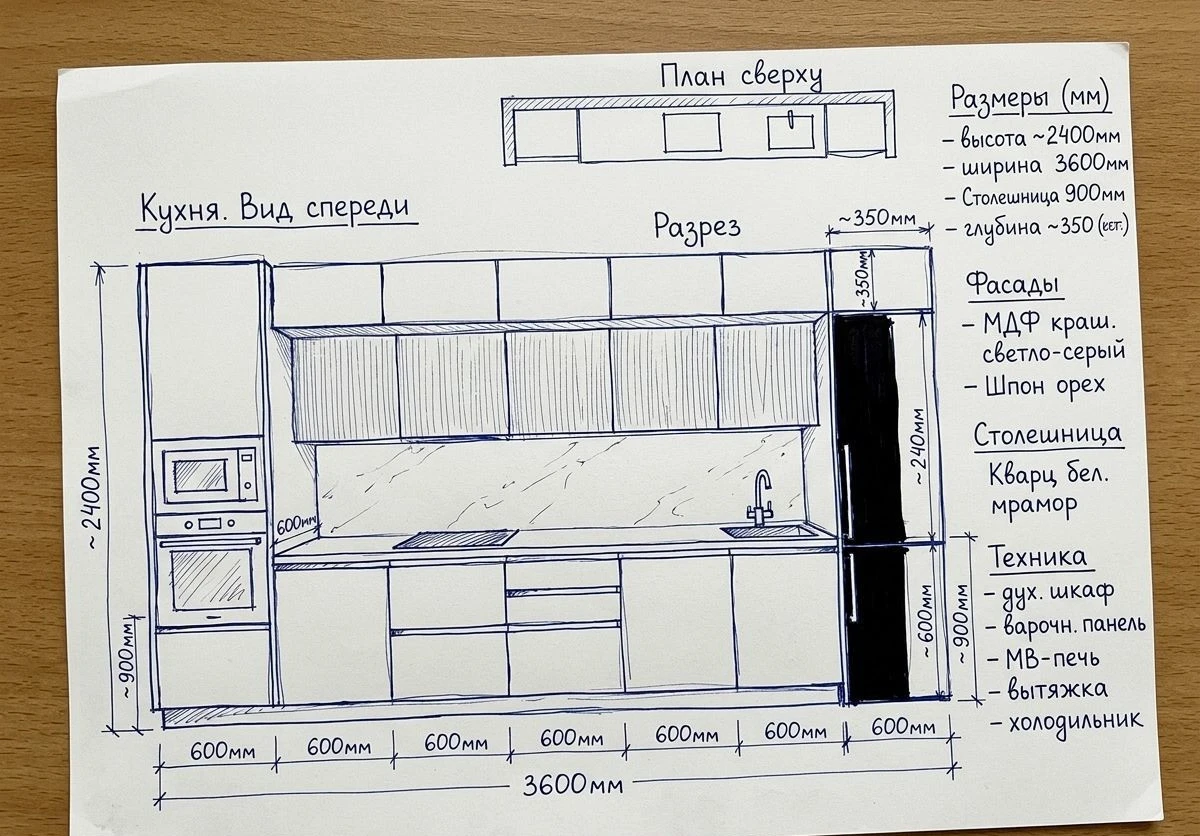 План сверху
Размеры (мм)
– высота ~2400мм
– ширина 3600мм
– Столешница 900мм
– глубина ~350
Кухня. Вид спереди
Разрез
~350мм
~350мм
Фасады
– МДФ краш.
светло-серый
– Шпон орех
Столешница
Кварц бел.
мрамор
~2400мм
~240мм
600мм
Техника
– дух. шкаф
– варочн. панель
– МВ-печь
– вытяжка
– холодильник
~900мм
~600мм
~900мм
600мм 600мм 600мм 600мм 600мм 600мм 600мм
3600мм